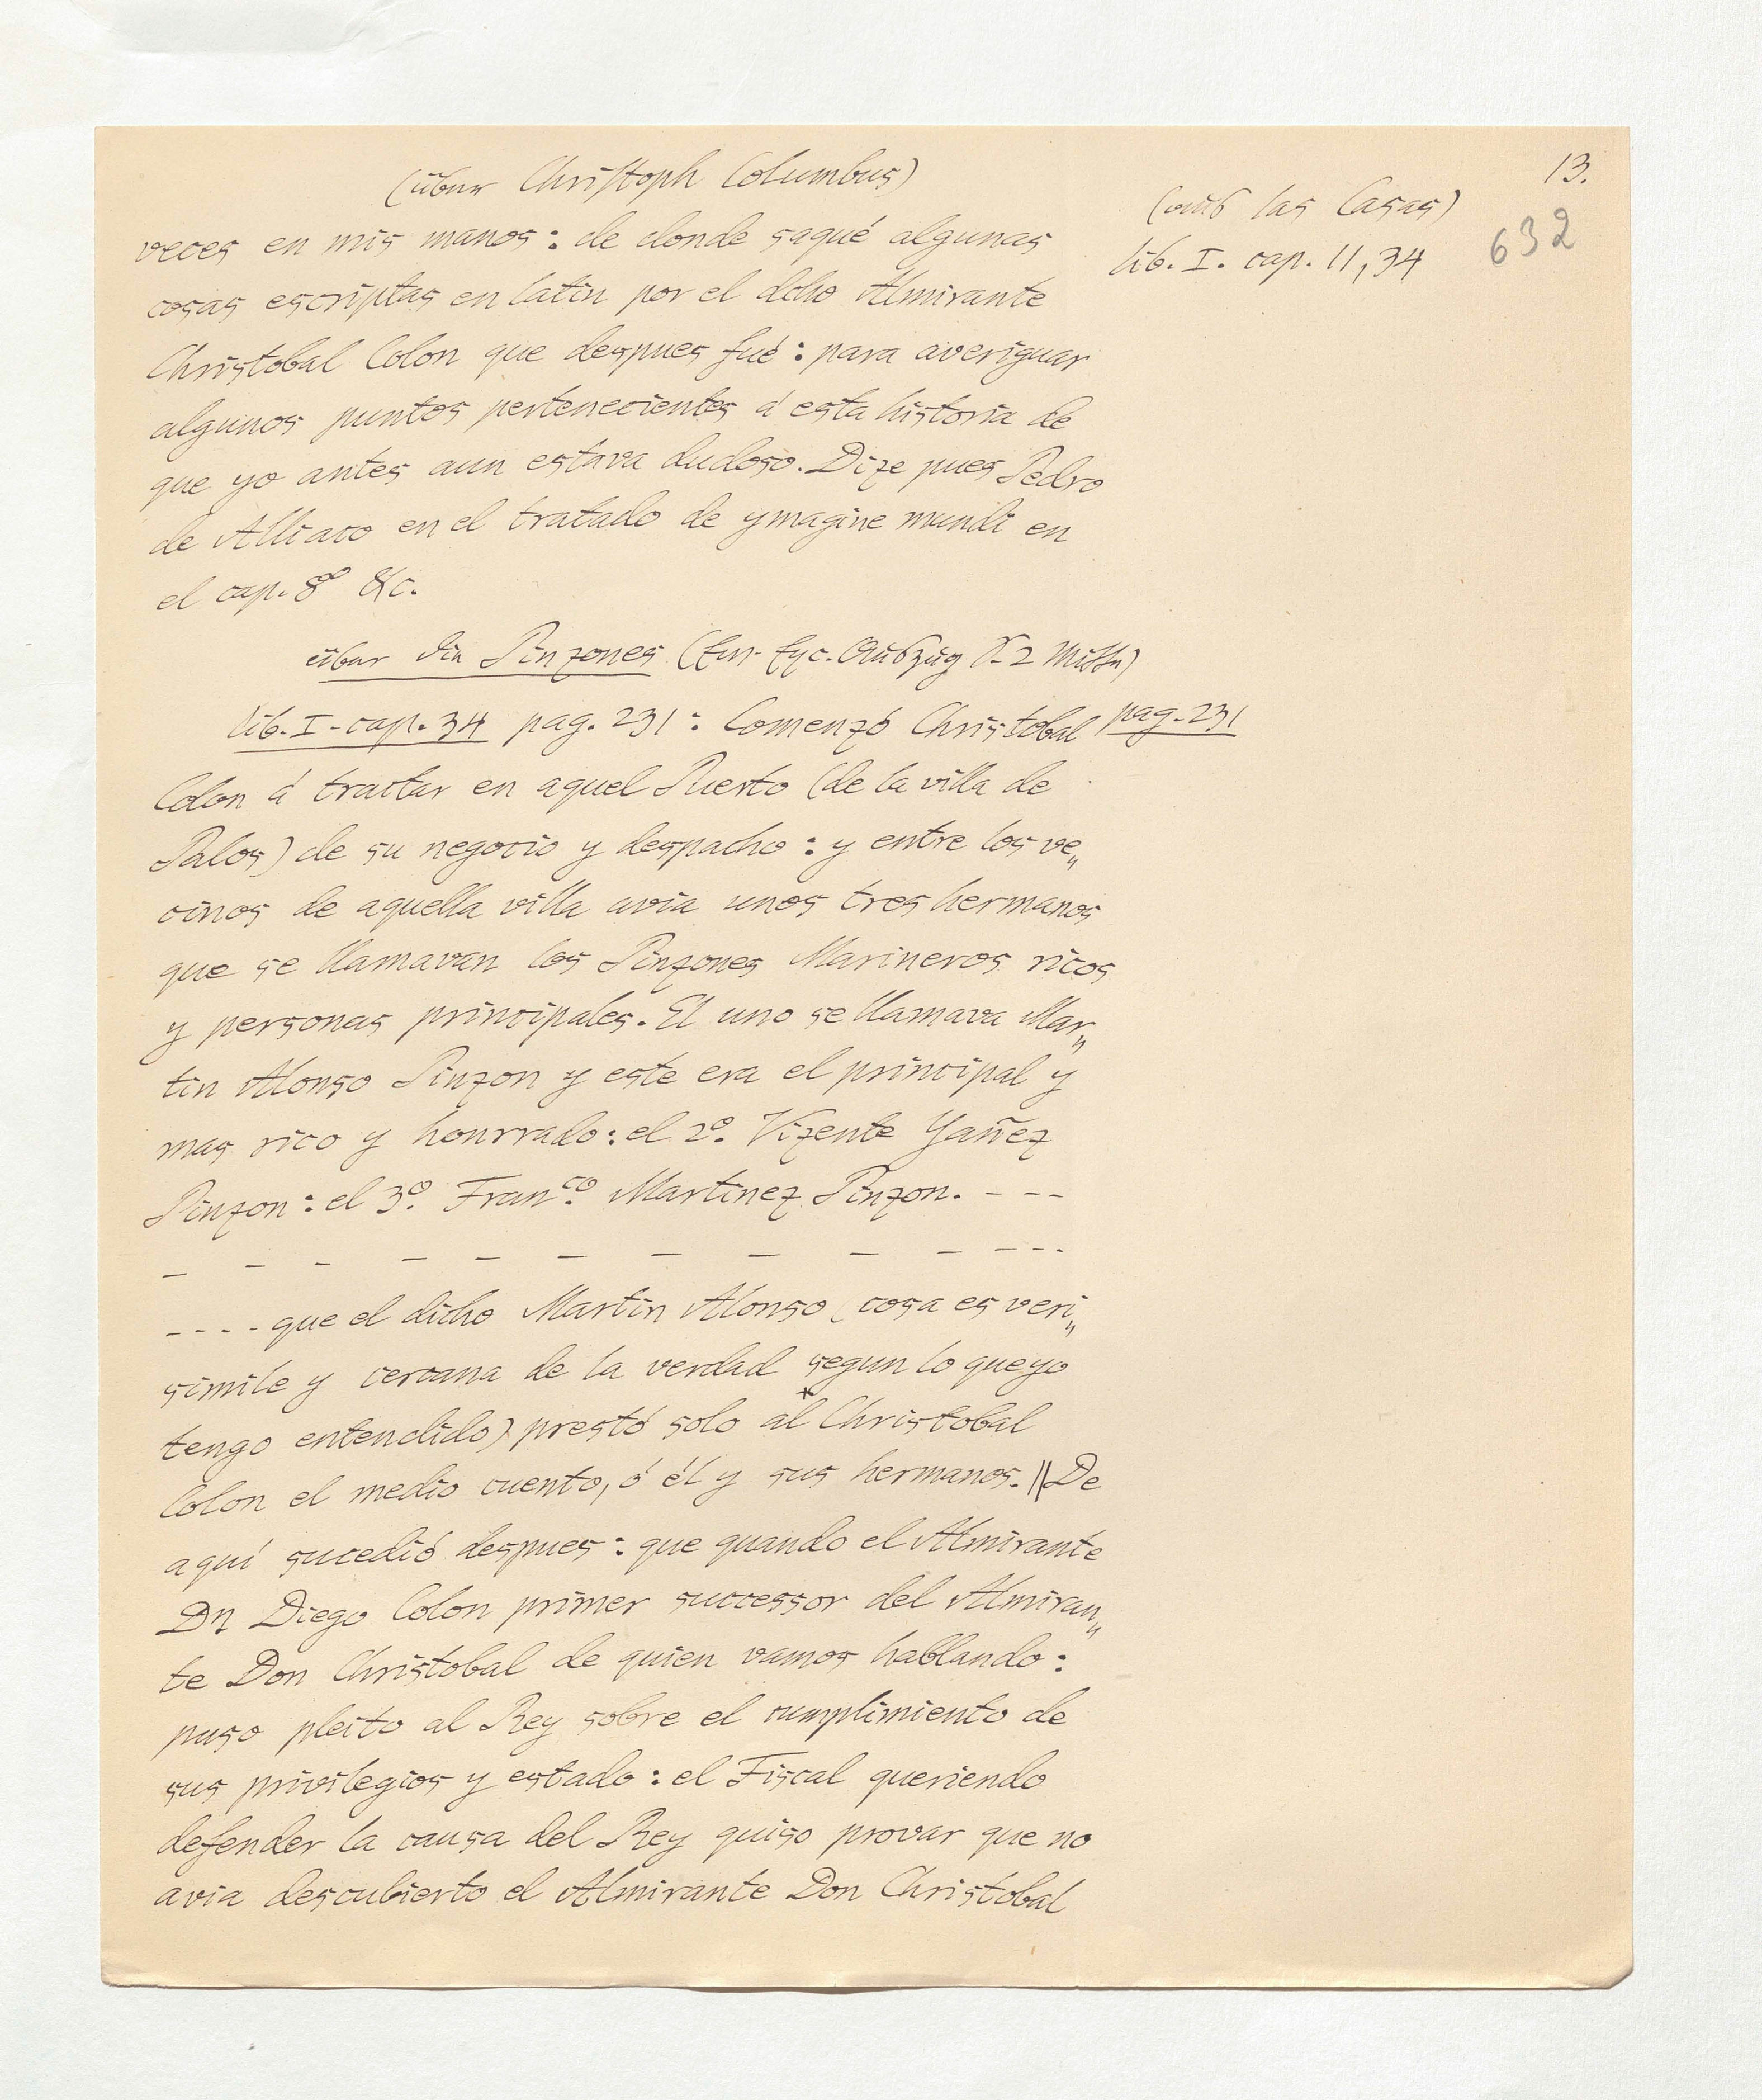 13.
(über Christoph Columbus)
(aus las Casas)
632
veces en mis manos: de donde saqué algunas
lib. I. cap. 11, 34
cosas escriptas en latin por el dcho Almirante
Christobal Colon que despues fué: para averiguar
algunos puntos pertenecientes á esta historia de
que yo antes aun estava dudoso. Dize pues Pedro
de Alliaco en el tratado de ymagine mundi en
el cap. 8º &c.
über die Pinzones (Auszug 2
lib. I - cap. 34 pag. 231: Comenzó Christobal pag. 231
Colon á tractar en aquel Puerto (de la villa de
Palos) de su negocio y despacho: y entre los ve„
cinos de aquella villa avia unos tres hermanos
que se llamavan los Pinzones Marineros ricos
y personas principales. El uno se llamava Mar„
tin Alonso Pinzon y este era el principal y
mas rico y honrrado: el 2º. Vizente Yañez
Pinzon: el 3º. Franco. Martinez Pinzon. - - -
- - - - - - - - - - - -
- - - - que el dicho Martin Alonso (cosa es veri„
simile y cercana de la verdad segun lo que yo
tengo entendido) prestó solo al* Christobal
Colon el medio cuento, ó él y sus hermanos. || De
aquí sucedió despues: que quando el Almirante
Dn Diego Colon primer successor del Almiran„
te Don Christobal de quien vamos hablando:
puso pleito al Rey sobre el cumplimiento de
sus privilegios y estado: el Fiscal queriendo
defender la causa del Rey quiso provar que no
avia descubierto el Almirante Don Christobal